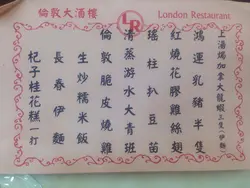 倫敦大酒樓
LR
London Restaurant
上湯焗加拿大龍蝦三隻(伊麵)
鴻運乳豬半隻
紅燒花膠雞絲翅
瑤柱扒豆苗
清蒸游水大青班
倫敦脆皮燒雞
生炒糯米飯
長春伊麵
杞子桂花糕一打